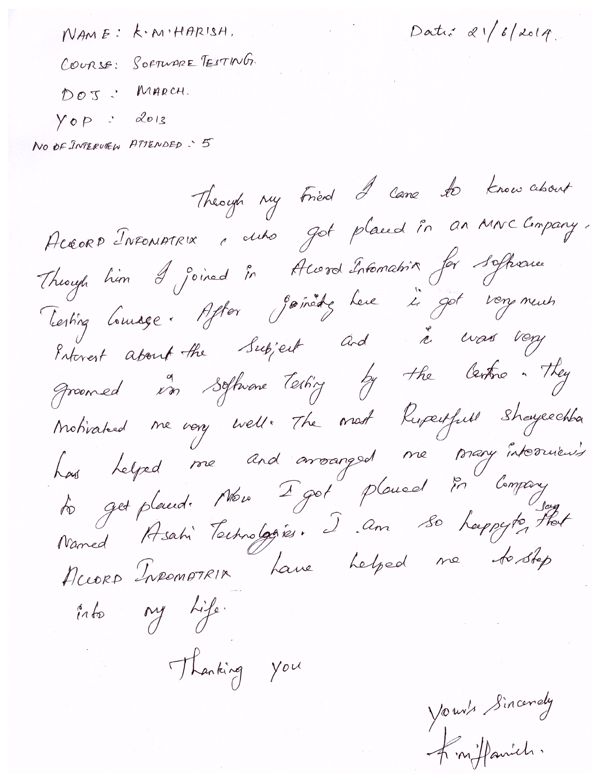 NAME: K.M.HARISH. Date: 21/6/2014.
COURSE: SOFTWARE TESTING.
DOJ: MARCH.
YOP: 2013
NO OF INTERVIEW ATTENDED: 5
Through my Friend I came to know about
ACCORD INFOMATRIX, who got placed in an MNC Company.
Through him I joined in Accord Infomatrix for software
Testing Course. After joining here i got very much
Interest about the subject and i was very
groomed in software Testing by the Centre. They
motivated me very well. The most Respectfull
has helped me and arranged me many interviews
to get placed. Now I got placed in Company
Named Asahi Technologies. I am so happy to say that
ACCORD INFOMATRIX have helped me to step
into my Life.
Thanking you
Yours Sincerely
K.M.Harish.